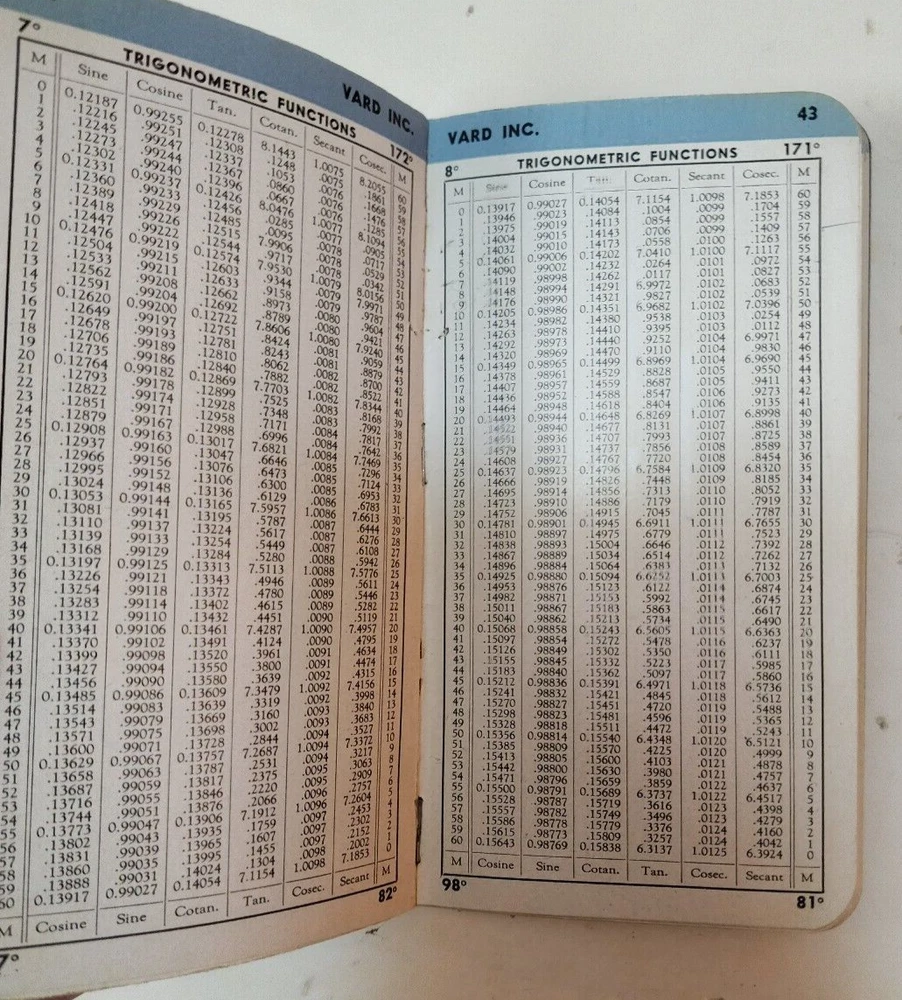 7°
VARD INC.
TRIGONOMETRIC FUNCTIONS 172°
M Sine Cosine Tan. Cotan. Secant Cosec. M
0 0.12187 0.99255 0.12278 8.1443 1.0075 8.2055 60
1 .12216 .99251 .12308 .1248 .0075 .1861 59
2 .12245 .99247 .12337 .1053 .0076 .1668 58
3 .12273 .99244 .12367 .0860 .0076 .1476 57
4 .12302 .99240 .12396 .0667 .0076 .1285 56
5 0.12331 0.99237 0.12426 8.0476 1.0077 8.1094 55
6 .12360 .99233 .12456 .0285 .0077 .0905 54
7 .12389 .99229 .12485 .0095 .0078 .0717 53
8 .12418 .99226 .12515 7.9906 .0078 .0529 52
9 .12447 .99222 .12544 .9717 .0078 .0342 51
10 0.12476 0.99219 0.12574 7.9530 1.0079 8.0156 50
11 .12504 .99215 .12603 .9344 .0079 7.9971 49
12 .12533 .99211 .12633 .9158 .0079 .9787 48
13 .12562 .99208 .12662 .8973 .0080 .9604 47
14 .12591 .99204 .12692 .8789 .0080 .9421 46
15 0.12620 0.99200 0.12722 7.8606 1.0080 7.9240 45
16 .12649 .99197 .12751 .8424 .0081 .9059 44
17 .12678 .99193 .12781 .8243 .0081 .8879 43
18 .12706 .99189 .12810 .8062 .0082 .8700 42
19 .12735 .99186 .12840 .7882 .0082 .8522 41
20 0.12764 0.99182 0.12869 7.7703 1.0082 7.8344 40
21 .12793 .99178 .12899 .7525 .0083 .8168 39
22 .12822 .99174 .12928 .7348 .0083 .7992 38
23 .12851 .99171 .12958 .7171 .0084 .7817 37
24 .12879 .99167 .12988 .6996 .0084 .7642 36
25 0.12908 0.99163 0.13017 7.6821 1.0084 7.7469 35
26 .12937 .99160 .13047 .6646 .0085 .7296 34
27 .12966 .99156 .13076 .6473 .0085 .7124 33
28 .12995 .99152 .13106 .6300 .0085 .6953 32
29 .13024 .99148 .13136 .6129 .0086 .6783 31
30 0.13053 0.99144 0.13165 7.5957 1.0086 7.6613 30
31 .13081 .99141 .13195 .5787 .0087 .6444 29
32 .13110 .99137 .13224 .5617 .0087 .6276 28
33 .13139 .99133 .13254 .5449 .0087 .6108 27
34 .13168 .99129 .13284 .5280 .0088 .5942 26
35 0.13197 0.99125 0.13313 7.5113 1.0088 7.5776 25
36 .13226 .99121 .13343 .4946 .0089 .5611 24
37 .13254 .99118 .13372 .4780 .0089 .5446 23
38 .13283 .99114 .13402 .4615 .0089 .5282 22
39 .13312 .99110 .13432 .4451 .0090 .5119 21
40 0.13341 0.99106 0.13461 7.4287 1.0090 7.4957 20
41 .13370 .99102 .13491 .4124 .0090 .4795 19
42 .13399 .99098 .13520 .3961 .0091 .4634 18
43 .13427 .99094 .13550 .3800 .0091 .4474 17
44 .13456 .99090 .13580 .3639 .0092 .4315 16
45 0.13485 0.99086 0.13609 7.3479 1.0092 7.4156 15
46 .13514 .99083 .13639 .3319 .0092 .3998 14
47 .13543 .99079 .13669 .3160 .0093 .3840 13
48 .13571 .99075 .13698 .3002 .0093 .3683 12
49 .13600 .99071 .13728 .2844 .0094 .3527 11
50 0.13629 0.99067 0.13757 7.2687 1.0094 7.3372 10
51 .13658 .99063 .13787 .2531 .0094 .3217 9
52 .13687 .99059 .13817 .2375 .0095 .3063 8
53 .13716 .99055 .13846 .2220 .0095 .2909 7
54 .13744 .99051 .13876 .2066 .0096 .2757 6
55 0.13773 0.99047 0.13906 7.1912 1.0096 7.2604 5
56 .13802 .99043 .13935 .1759 .0097 .2453 4
57 .13831 .99039 .13965 .1607 .0097 .2302 3
58 .13860 .99035 .13995 .1455 .0097 .2152 2
59 .13888 .99031 .14024 .1304 .0098 .2002 1
60 0.13917 0.99027 0.14054 7.1154 1.0098 7.1853 0
M Cosine Sine Cotan. Tan. Cosec. Secant M
7° 82°
VARD INC. 43
8° TRIGONOMETRIC FUNCTIONS 171°
M Sine Cosine Tan. Cotan. Secant Cosec. M
0 0.13917 0.99027 0.14054 7.1154 1.0098 7.1853 60
1 .13946 .99023 .14084 .1004 .0099 .1704 59
2 .13975 .99019 .14113 .0854 .0099 .1557 58
3 .14004 .99015 .14143 .0706 .0099 .1409 57
4 .14032 .99010 .14173 .0558 .0100 .1263 56
5 0.14061 0.99006 0.14202 7.0410 1.0100 7.1117 55
6 .14090 .99002 .14232 .0264 .0101 .0972 54
7 .14119 .98998 .14262 .0117 .0101 .0827 53
8 .14148 .98994 .14291 6.9972 .0102 .0683 52
9 .14176 .98990 .14321 .9827 .0102 .0539 51
10 0.14205 0.98986 0.14351 6.9682 1.0102 7.0396 50
11 .14234 .98982 .14380 .9538 .0103 .0254 49
12 .14263 .98978 .14410 .9395 .0103 .0112 48
13 .14292 .98973 .14440 .9252 .0104 6.9971 47
14 .14320 .98969 .14470 .9110 .0104 .9830 46
15 0.14349 0.98965 0.14499 6.8969 1.0104 6.9690 45
16 .14378 .98961 .14529 .8828 .0105 .9550 44
17 .14407 .98957 .14559 .8687 .0105 .9411 43
18 .14436 .98952 .14588 .8547 .0106 .9273 42
19 .14464 .98948 .14618 .8404 .0106 .9135 41
20 0.14493 0.98944 0.14648 6.8269 1.0107 6.8998 40
21 .14522 .98940 .14677 .8131 .0107 .8861 39
22 .14551 .98936 .14707 .7993 .0108 .8725 38
23 .14579 .98931 .14737 .7856 .0108 .8589 37
24 .14608 .98927 .14767 .7720 .0108 .8454 36
25 0.14637 0.98923 0.14796 6.7584 1.0109 6.8320 35
26 .14666 .98919 .14826 .7448 .0109 .8185 34
27 .14695 .98914 .14856 .7313 .0110 .8052 33
28 .14723 .98910 .14886 .7179 .0110 .7919 32
29 .14752 .98906 .14915 .7045 .0111 .7787 31
30 0.14781 0.98901 0.14945 6.6911 1.0111 6.7655 30
31 .14810 .98897 .14975 .6779 .0111 .7523 29
32 .14838 .98893 .15004 .6646 .0112 .7392 28
33 .14867 .98889 .15034 .6514 .0112 .7262 27
34 .14896 .98884 .15064 .6383 .0113 .7132 26
35 0.14925 0.98880 0.15094 6.6252 1.0113 6.7003 25
36 .14953 .98876 .15123 .6122 .0114 .6874 24
37 .14982 .98871 .15153 .5992 .0114 .6745 23
38 .15011 .98867 .15183 .5863 .0115 .6617 22
39 .15040 .98862 .15213 .5734 .0115 .6490 21
40 0.15068 0.98858 0.15243 6.5605 1.0115 6.6363 20
41 .15097 .98854 .15272 .5478 .0116 .6237 19
42 .15126 .98849 .15302 .5350 .0116 .6111 18
43 .15155 .98845 .15332 .5223 .0117 .5985 17
44 .15183 .98840 .15362 .5097 .0117 .5860 16
45 0.15212 0.98836 0.15391 6.4971 1.0118 6.5736 15
46 .15241 .98832 .15421 .4845 .0118 .5612 14
47 .15270 .98827 .15451 .4720 .0119 .5488 13
48 .15298 .98823 .15481 .4596 .0119 .5365 12
49 .15328 .98818 .15511 .4472 .0119 .5243 11
50 0.15356 0.98814 0.15540 6.4348 1.0120 6.5121 10
51 .15385 .98809 .15570 .4225 .0120 .4999 9
52 .15413 .98805 .15600 .4103 .0121 .4878 8
53 .15442 .98800 .15630 .3980 .0121 .4757 7
54 .15471 .98796 .15659 .3859 .0122 .4637 6
55 0.15500 0.98791 0.15689 6.3737 1.0122 6.4517 5
56 .15528 .98787 .15719 .3616 .0123 .4398 4
57 .15557 .98782 .15749 .3496 .0123 .4279 3
58 .15586 .98778 .15779 .3376 .0124 .4160 2
59 .15615 .98773 .15809 .3257 .0124 .4042 1
60 0.15643 0.98769 0.15838 6.3137 1.0125 6.3924 0
M Cosine Sine Cotan. Tan. Cosec. Secant M
98° 81°